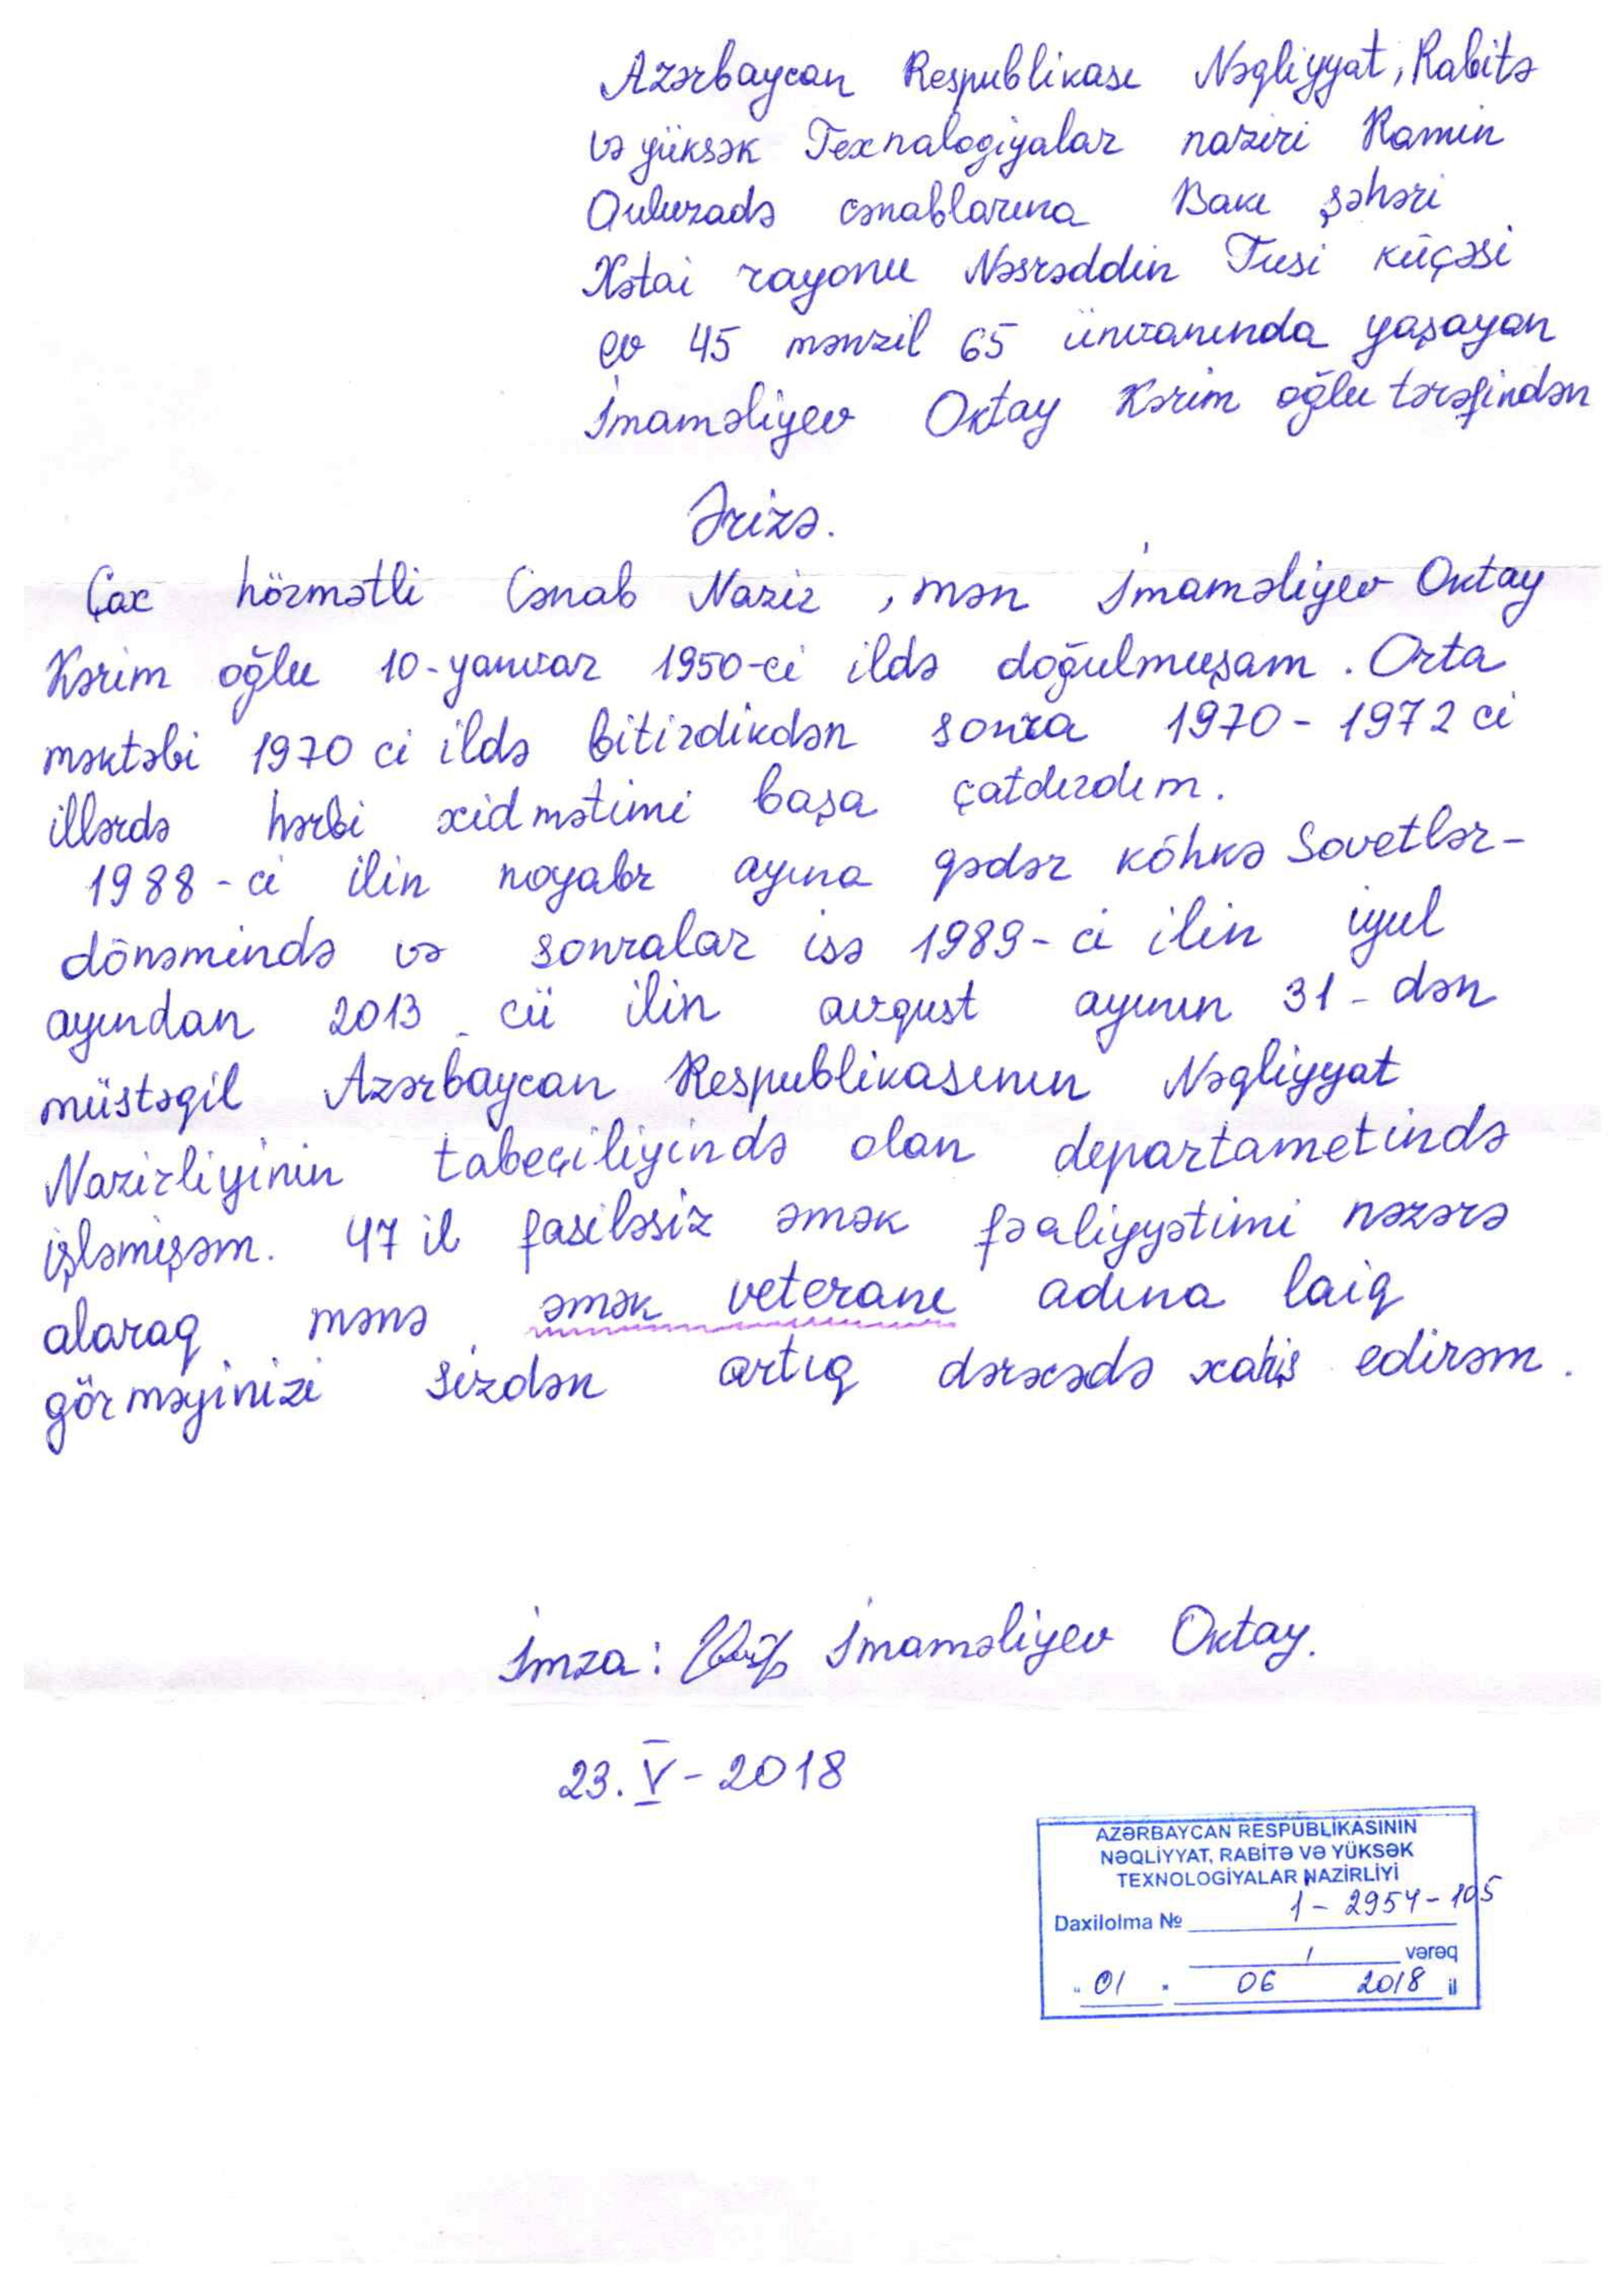 Azərbaycan Respublikası Nəqliyyat, Rabitə
və yüksək Texnalogiyalar naziri Ramin
Quluzadə cənablarına Bakı şəhəri
Xətai rayonu Nəsrəddin Tusi küçəsi
ev 45 mənzil 65 ünvanında yaşayan
İmaməliyev Oktay Kərim oğlu tərəfindən
Ərizə.
Çax hörmətli Cənab Nazir, mən İmaməliyev Oktay
Kərim oğlu 10-yanvar 1950-ci ildə doğulmuşam. Orta
məktəbi 1970 ci ildə bitirdikdən sonra 1970-1972 ci
illərdə hərbi xidmətimi başa çatdırdım.
1988-ci ilin noyabr ayına qədər köhnə Sovetlər-
dönəmində və sonralar isə 1989-ci ilin iyul
ayından 2013-cü ilin avqust ayının 31-dən
müstəqil Azərbaycan Respublikasının Nəqliyyat
Nazirliyinin tabeçiliyində olan departametində
işləmişəm. 47 il fasiləsiz əmək fəaliyyətimi nəzərə
alaraq mənə əmək veteranı adına laiq
görməyinizi sizdən artıq dərəcədə xahiş edirəm.
İmza: İmaməliyev Oktay.
23.V-2018
AZƏRBAYCAN RESPUBLİKASININ
NƏQLİYYAT, RABİTƏ VƏ YÜKSƏK
TEXNOLOGİYALAR NAZİRLİYİ
Daxilolma № 1-2954-105
1 vərəq
"01" 06 2018 il